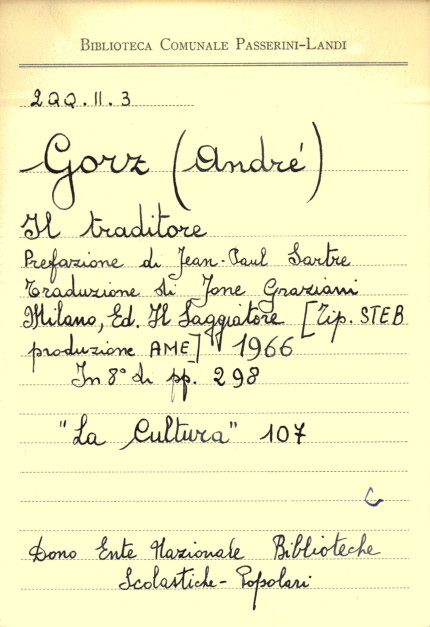 BIBLIOTECA COMUNALE PASSERINI-LANDI
2QQ.II.3
Gorz (André)
Il traditore
Prefazione di Jean-Paul Sartre
Traduzione di Jone Graziani
Milano, Ed. Il Saggiatore [Tip. STEB
produzione AME] 1966
In 8° di pp. 298
"La Cultura" 107
Dono Ente Nazionale Biblioteche
Scolastiche-Popolari